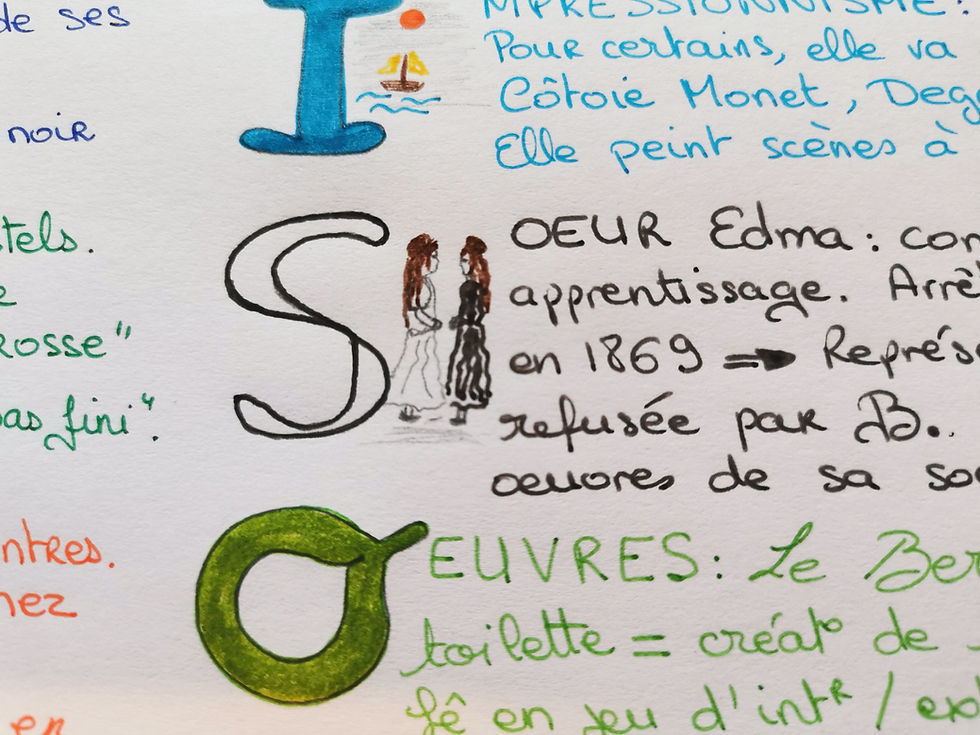 de ses
noir
tels.
e
rosse"
pas fini".
ntres.
nez
en
IMPRESSIONNISME :
Pour certains, elle va
Côtoie Monet, Deg
Elle peint scènes à
SOEUR Edma : con
apprentissage. Arrê
en 1869 ➡ Représ
refusée par B.
oeuvres de sa soe
OEUVRES : Le Ber
toilette = créat° de
fê en jeu d'intʀ / ex